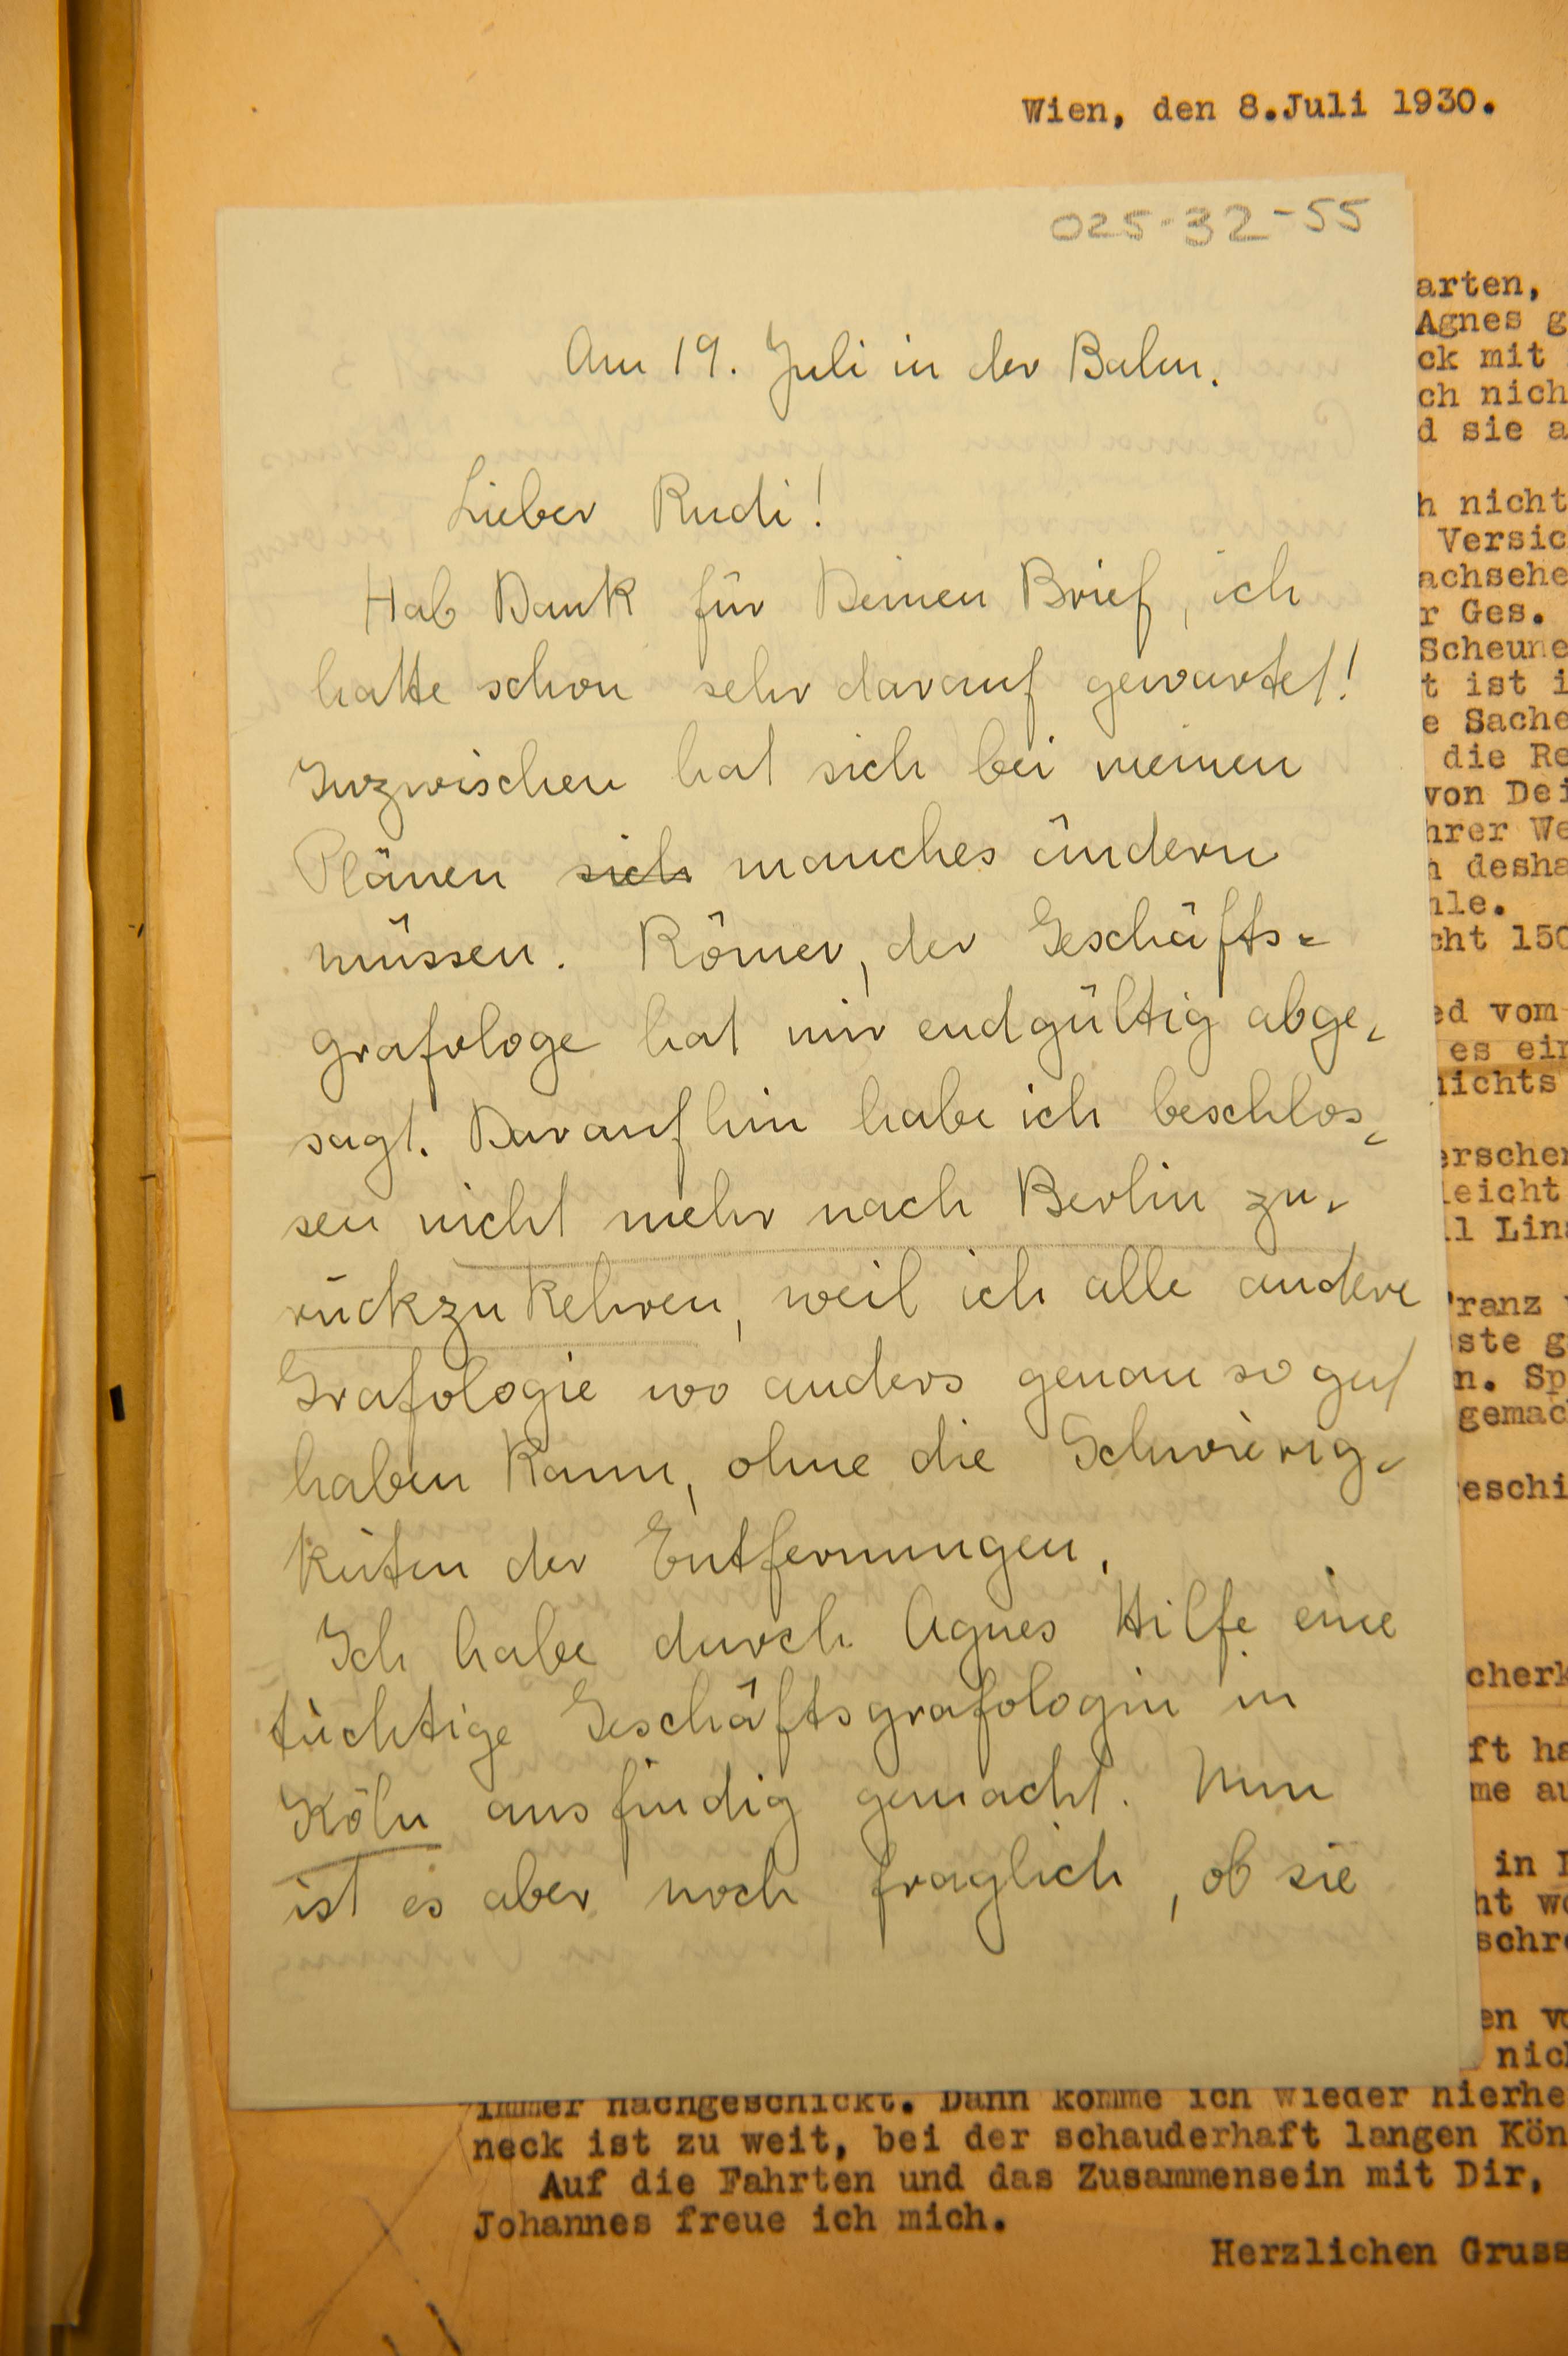 Wien, den 8.Juli 1930.
025-32-55
Am 19. Juli in der Bahn.
Lieber Rudi!
Hab Dank für Deinen Brief, ich
hatte schon sehr darauf gewartet!
Inzwischen hat sich bei meinen
Plänen sich manches ändern
müssen. Römer, der Geschäfts-
grafologe hat mir endgültig abge-
sagt. Daraufhin habe ich beschlos-
sen nicht mehr nach Berlin zu-
rückzukehren, weil ich alle andere
Grafologie wo anders genau so gut
haben kann, ohne die Schwierig-
keiten der Entfernungen.
Ich habe durch Agnes Hilfe eine
tüchtige Geschäftsgrafologin in
Köln ausfindig gemacht. Nun
ist es aber noch fraglich, ob sie
arten,
Agnes g
ck mit
ch nich
d sie a
h nicht
Versic
achsehe
r Ges.
Scheune
t ist i
e Sache
die Re
von Dei
hrer We
n desha
hle.
cht 150
ed vom
es ein
nichts
erschen
leicht
ll Lina
ranz
ste g
n. Sp
gemac
eschi
cherk
ft ha
me au
in
ht wo
schre
en vo
nich
immer nachgeschickt. Dann komme ich wieder hierhe
neck ist zu weit, bei der schauderhaft langen Kön
Auf die Fahrten und das Zusammensein mit Dir,
Johannes freue ich mich.
Herzlichen Gruss